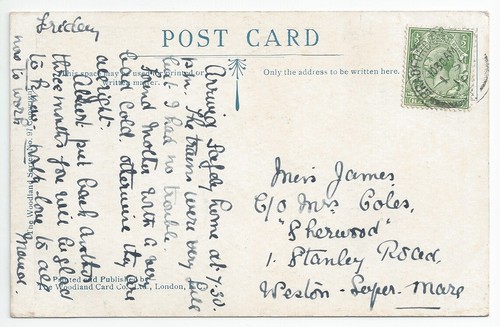 Friday
POST CARD
This space may be used for printed or
written matter.
Only the address to be written here.
Arrived safely home at 7.30.
p.m. The trains were very full
but I had no trouble.
Found Mother with a very
bad cold. otherwise they are
alright.
put back another
three months for will be glad
to know. much love to all
now to work
Maude.
Miss James
C/o Mrs Coles,
"Sherwood"
1. Stanley Road,
Weston-Super-Mare
Printed and Published by
Woodland Card Co., Ltd., London,